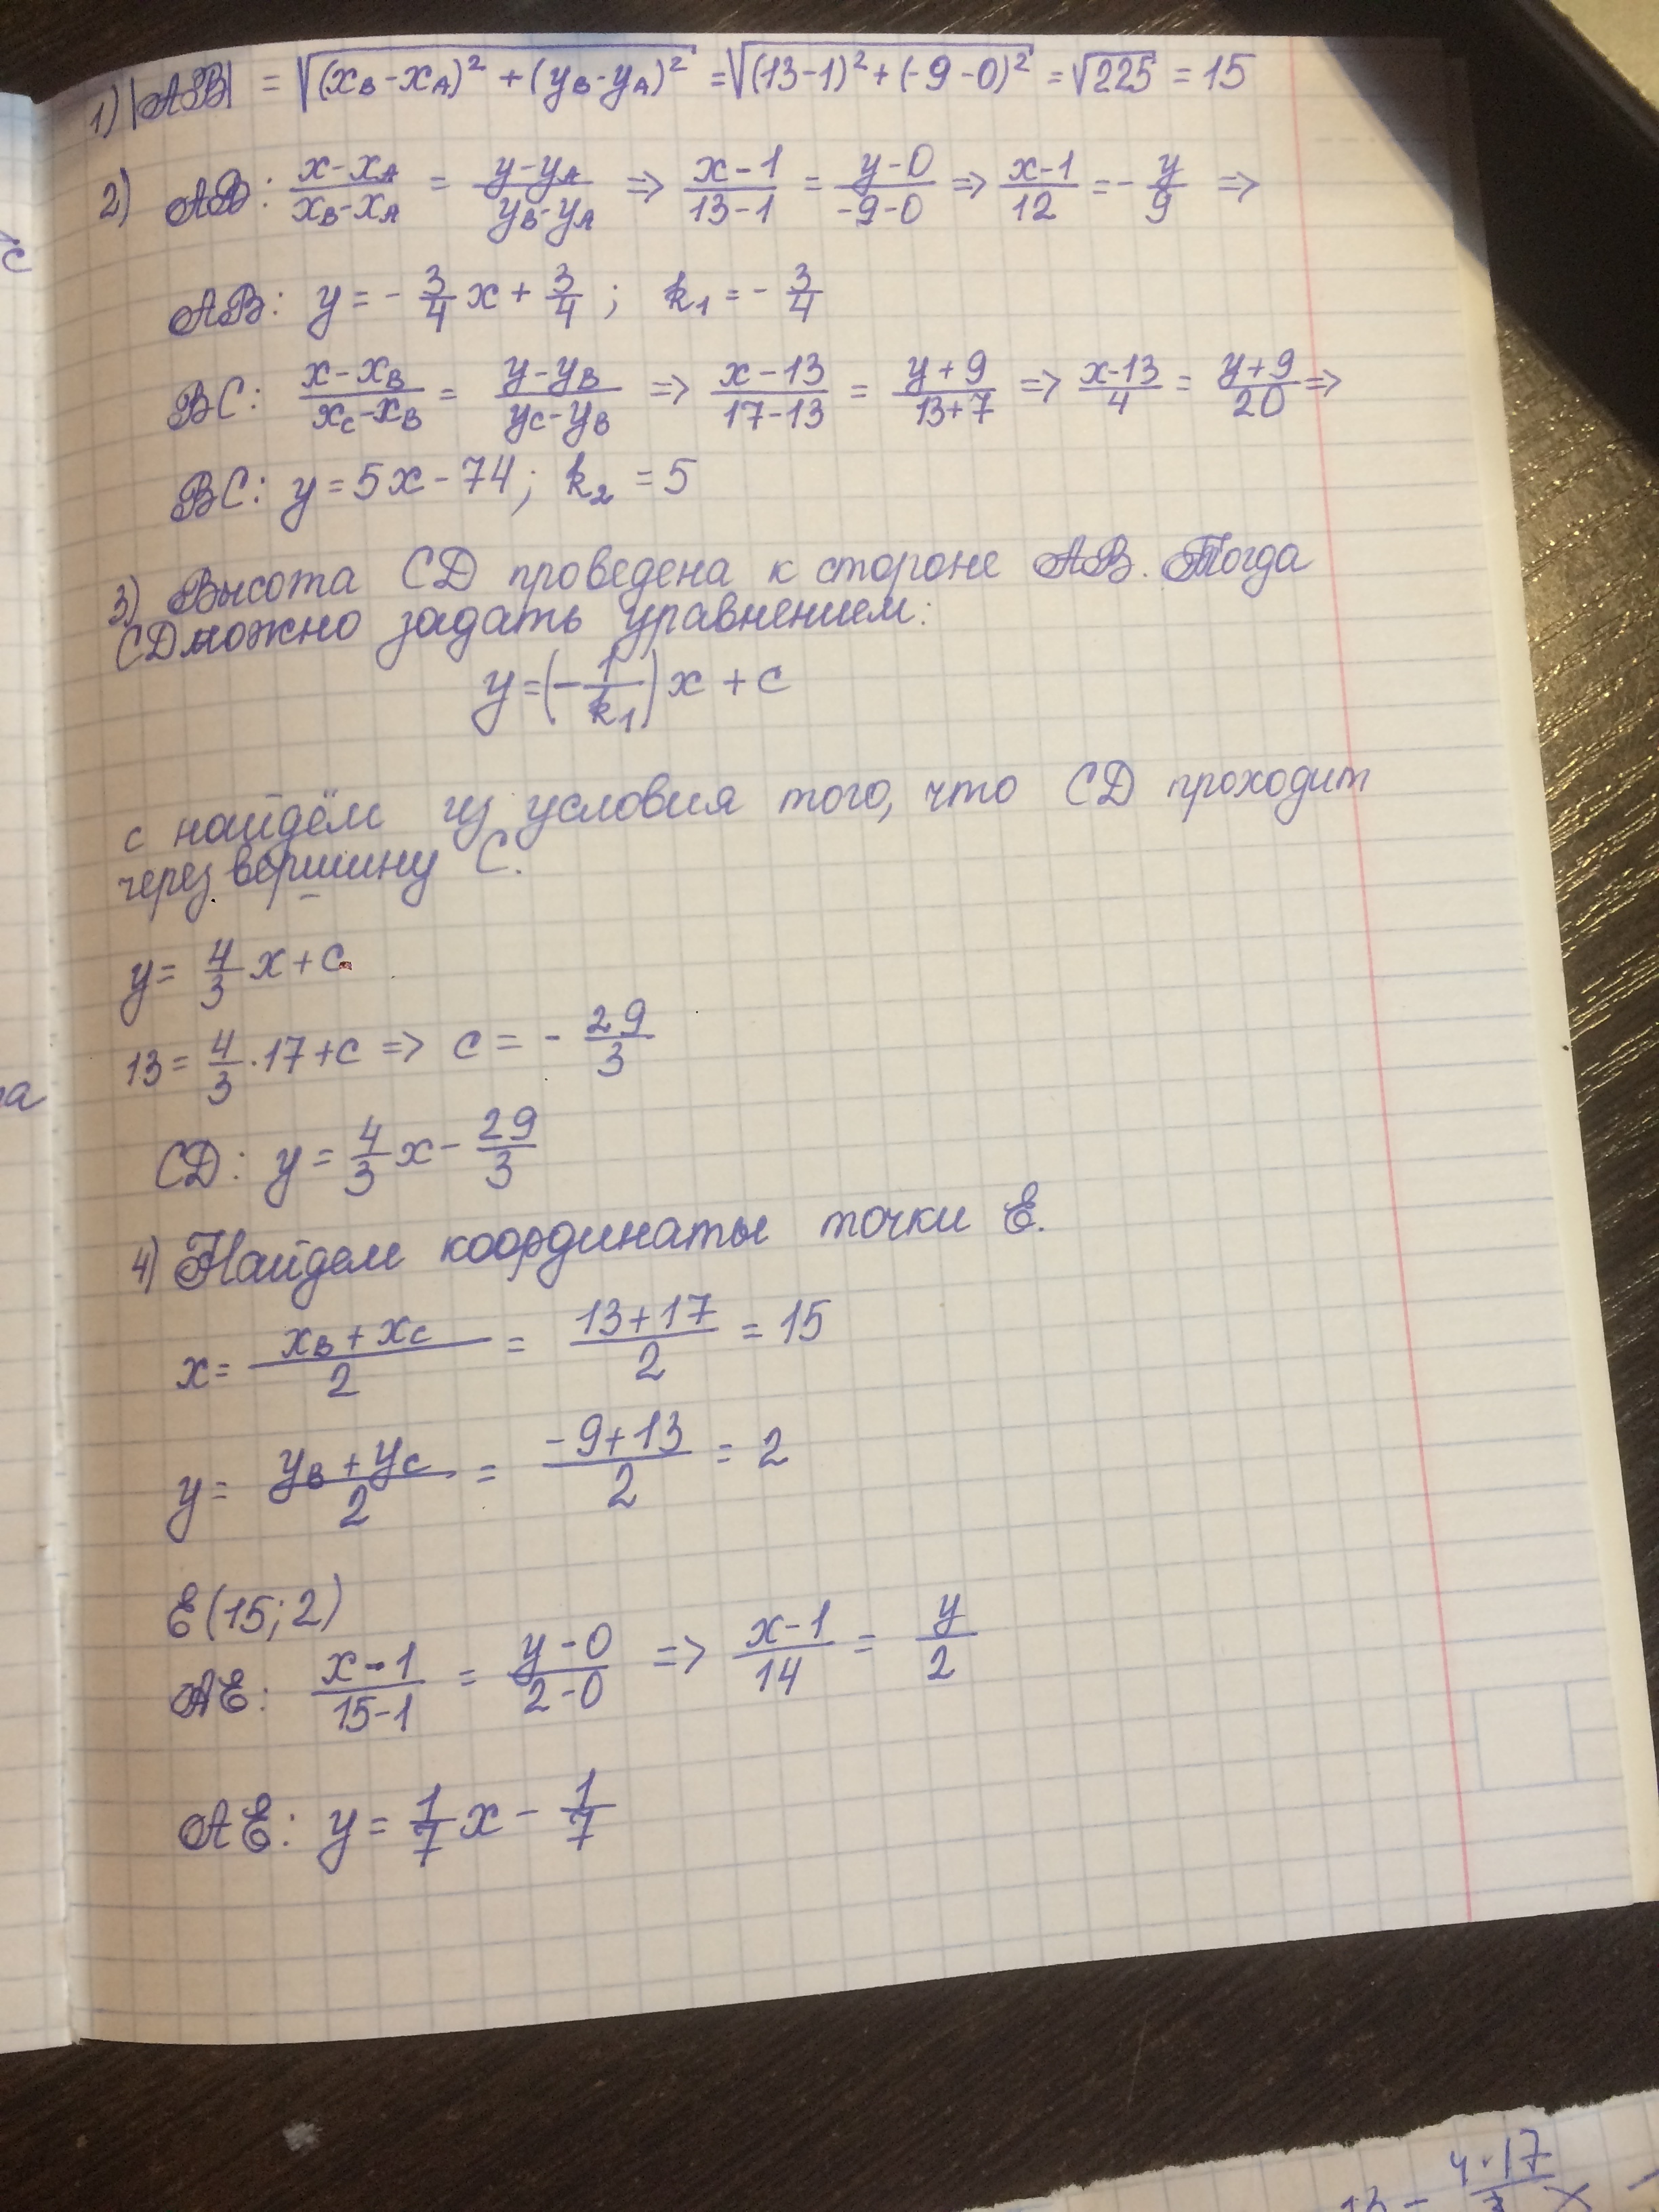 1) |AB| = √((x_B - x_A)² + (y_B - y_A)²) = √((13-1)² + (-9-0)²) = √225 = 15
2) AB: (x-x_A)/(x_B-x_A) = (y-y_A)/(y_B-y_A) => (x-1)/(13-1) = (y-0)/(-9-0) => (x-1)/12 = - y/9 =>
AB: y = - 3/4 x + 3/4 ; k₁ = - 3/4
BC: (x-x_B)/(x_C-x_B) = (y-y_B)/(y_C-y_B) => (x-13)/(17-13) = (y+9)/(13+7) => (x-13)/4 = (y+9)/20 =>
BC: y = 5x - 74; k₂ = 5
3) Высота CD проведена к стороне AB. Тогда
CD можно задать уравнением:
y = (- 1/k₁) x + c
с найдём из условия того, что CD проходит
через вершину C.
y = 4/3 x + c
13 = 4/3 · 17 + c => c = - 29/3
CD: y = 4/3 x - 29/3
4) Найдем координаты точки E.
x = (x_B + x_C)/2 = (13+17)/2 = 15
y = (y_B + y_C)/2 = (-9+13)/2 = 2
E(15; 2)
AE: (x-1)/(15-1) = (y-0)/(2-0) => (x-1)/14 = y/2
AE: y = 1/7 x - 1/7
с
а